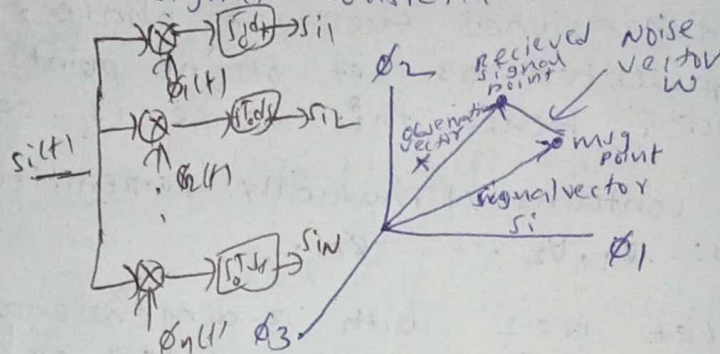 ∫₀ᵀdt
Si1
Φ1(t)
∫₀ᵀdt
Si2
Si(t)
Φ2(t)
∫₀ᵀdt
SiN
Φn(t)
Φ2
Recieved
signal
point
Noise
vector
W
observation
vector
X
msg
point
signal vector
Si
Φ1
Φ3